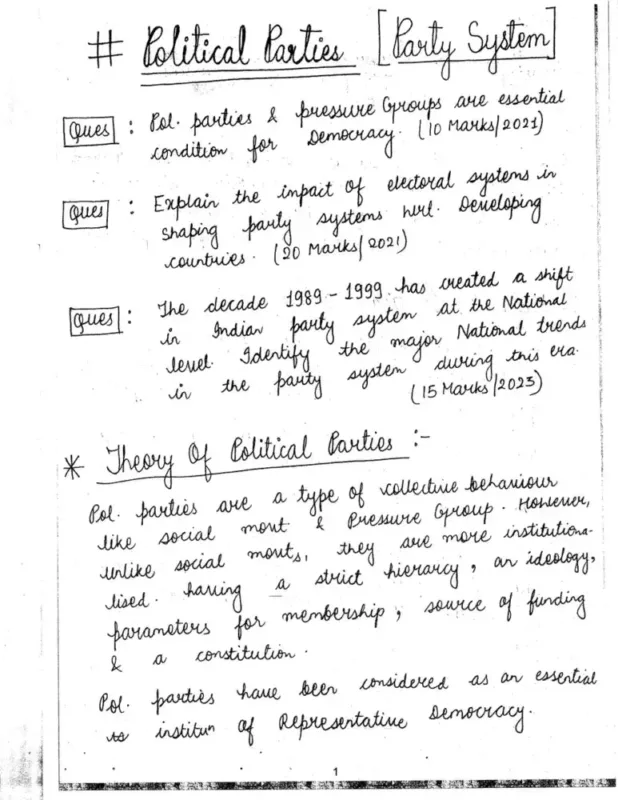 # Political Parties [Party System]
Ques : Pol. parties & pressure Groups are essential
condition for Democracy. (10 Marks/2021)
Ques : Explain the impact of electoral systems in
shaping party systems wrt. Developing
countries. (20 Marks/2021)
Ques : The decade 1989-1999 has created a shift
in Indian party system at the National
level. Identify the major National trends
in the party system during this era.
(15 Marks/2023)
* Theory Of Political Parties :-
Pol. parties are a type of collective behaviour
like social movnt & Pressure Group. However,
unlike social movnts, they are more institutiona-
lised. having a strict hierarcy, an ideology,
parameters for membership, source of funding
& a constitution.
Pol. parties have been considered as an essential
institun of Representative Democracy.
1